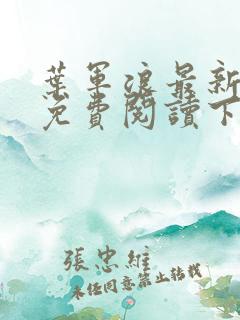 葉軍浪最新
免費閱讀下
張忠維
未經同意禁止轉載